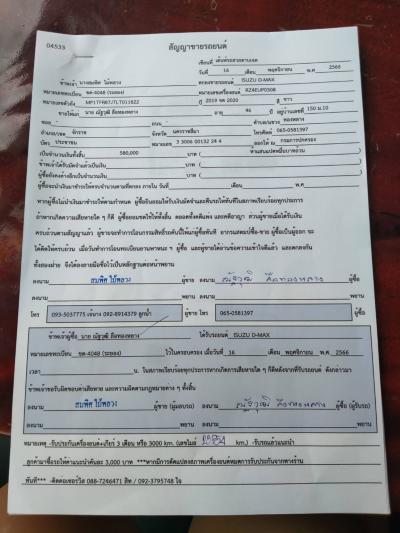 04533
สัญญาขายรถยนต์
เขียนที่ เต็นท์รถสวยตามเจต
วันที่ 16 เดือน พฤศจิกายน พ.ศ 2566
ข้าพเจ้า นางสมพิศ ไม้หลวง ตกลงขายรถยนต์ ISUZU D-MAX
หมายเลขทะเบียน ขต-4048 (ระยอง) หมายเลขเครื่องยนต์ RZ4EUP0308
หมายเลขตัวถัง MP1TFR87JTLT011822 ปี 2019 จด 2020 สี ขาว
ขายให้แก่ นาย ณัฐวุฒิ อายุ 46 ปี อยู่บ้านเลขที่ 150 ม.10
ซอย ถนน ตำบล/แขวง ทองหลาง
อำเภอ/เขต จักราช จังหวัด นครราชสีมา โทรศัพท์ 065-0581397
บัตร ประชาชน หมายเลข 3 3006 00132 24 4 ออกให้ ณ กรมการปกครอง
เป็นจำนวนเงินทั้งสิ้น 580,000 บาท ( ห้าแสนแปดหมื่นบาทถ้วน )
ข้าพเจ้าได้รับมัดจำแล้วเป็นเงิน บาท ( )
ผู้ซื้อยังคงค้างอีกเป็นจำนวนเงิน บาท ( )
ผู้ซื้อจะนำเงินมาชำระให้ครบจำนวนตามที่ตกลง ภายใน วันที่ เดือน พ.ศ
หากผู้ซื้อไม่นำเงินมาชำระให้ตามกำหนด ผู้ซื้อยินยอมให้ริบเงินมัดจำและคืนรถให้ทันทีในสภาพเรียบร้อยทุกประการ
ถ้าหากเกิดความเสียหายใด ๆ ก็ดี ผู้ซื้อยอมชดใช้ให้ทั้งสิ้น ตลอดทั้งคดีแพ่ง และคดีอาญา ส่วนผู้ขายเมื่อได้รับเงิน
ครบถ้วนตามสัญญาแล้ว ผู้ขายจะทำการโอนกรรมสิทธิ์รถคันนี้ให้แก่ผู้ซื้อทันที
ได้คิดให้ครบถ้วน เมื่อวันทำการโอนทะเบียนยานพาหนะ ฯ ผู้ซื้อ และผู้ขายได้อ่านข้อความเข้าใจดีแล้ว และตกลงกัน
ทั้งสองฝ่าย จึงได้ลงลายมือชื่อไว้เป็นหลักฐานต่อหน้าพยาน
ลงนาม สมพิศ ไม้หลวง ผู้ขาย ลงนาม ณัฐวุฒิ ผู้ซื้อ
ลงนาม พยาน ลงนาม พยาน
โทร 093-5037775 092-8914379 ลูกน้ำ ผู้ขาย โทร 065-0581397 ผู้ซื้อ
ข้าพเจ้าผู้ซื้อ นาย ณัฐวุฒิ ได้รับรถยนต์ ISUZU D-MAX
หมายเลขทะเบียน ขต-4048 (ระยอง) ไว้ในครอบครอง เมื่อวันที่ 16 เดือน พฤศจิกายน พ.ศ. 2566
เวลา น. ในสภาพเรียบร้อยทุกประการหากเกิดการเสียหายใด ๆ ก็ดีหลังจากที่รับรถยนต์ ดังกล่าวมา
ข้าพเจ้าขอรับผิดชอบค่าเสียหาย และความผิดตามกฎหมายต่าง ๆ ทั้งสิ้น
ลงนาม สมพิศ ไม้หลวง ผู้ขาย (ผู้มอบรถ) ลงนาม ณัฐวุฒิ ผู้ซื้อ (ผู้รับรถ)
ลงนาม พยาน ลงนาม พยาน
หมายเหตุ -รับประกันเครื่องยนต์+เกียร์ 3 เดือน หรือ 3000 km. (เลขไมล์ km.) -รับรถแล้วแนะนำ
ลูกค้ามาซื้อรถให้ค่าแนะนำคันละ 3,000 บาท ***หากมีการดัดแปลงสภาพเครื่องยนต์หมดการรับประกันจากทางร้าน
ทันที*** -ติดต่อเซอร์วิส 088-7246471 สิท / 092-3795748 โจ